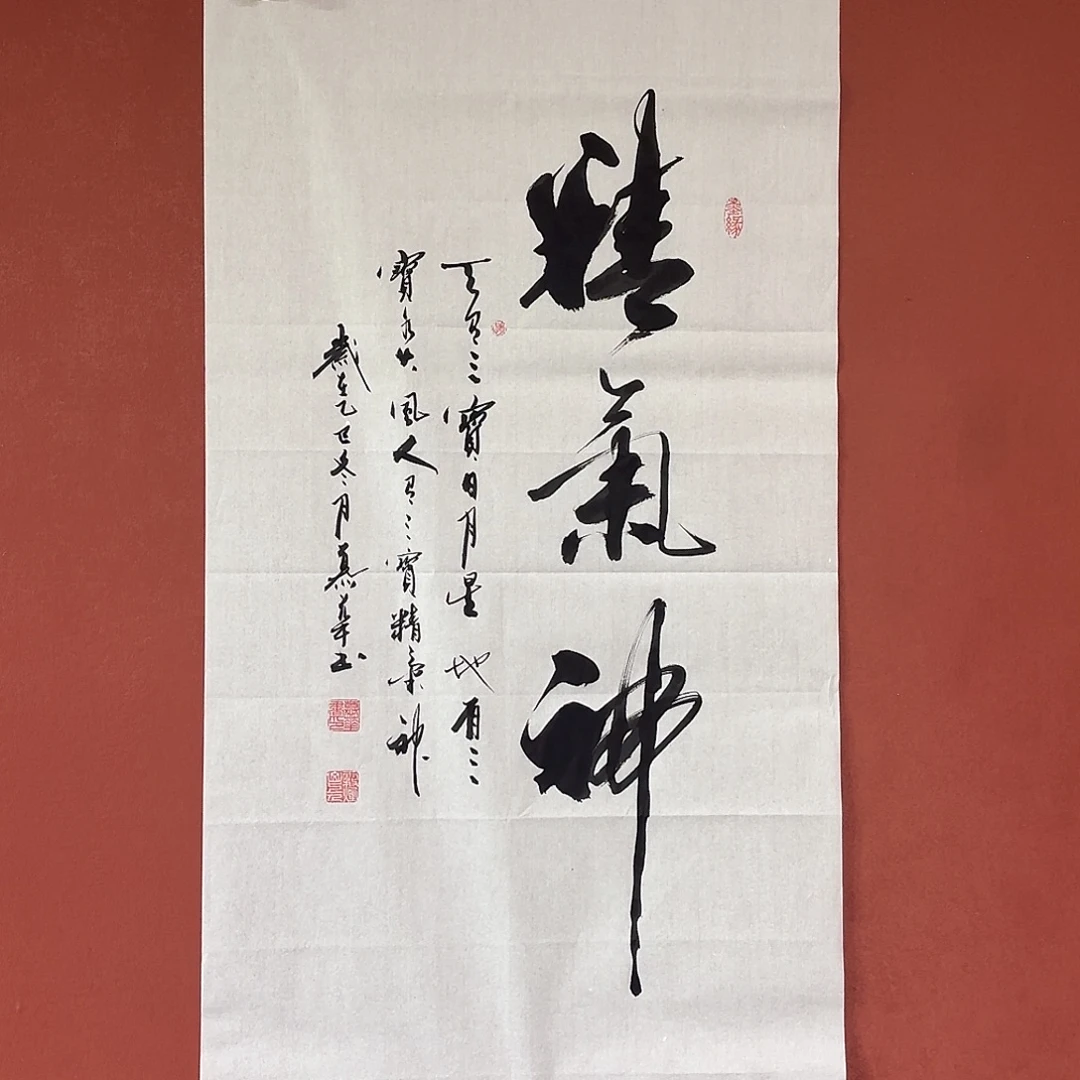 精氣神
天有三寶日月星地有三
寶水火風人有三寶精氣神
歲在乙巳冬月慕華書
墨緣